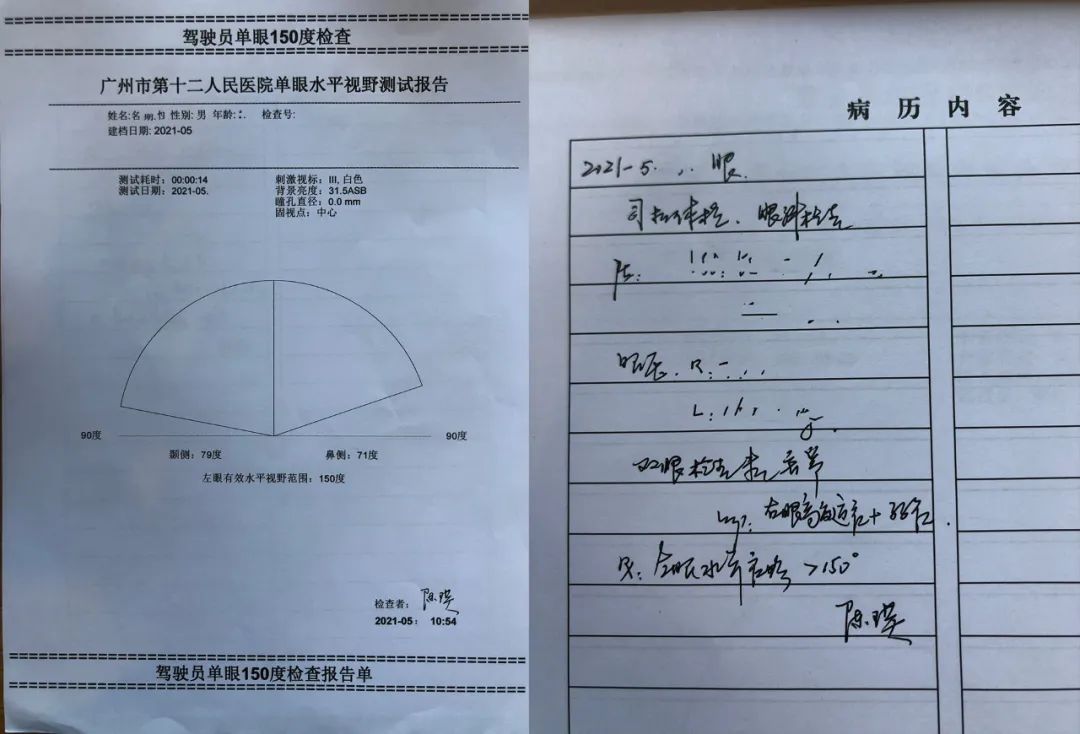 驾驶员单眼150度检查
广州市第十二人民医院单眼水平视野测试报告
姓名: 性别: 男 年龄: 检查号:
建档日期: 2021-05
测试耗时: 00:00:14
测试日期: 2021-05.
刺激视标: III, 白色
背景亮度: 31.5ASB
瞳孔直径: 0.0 mm
固视点: 中心
90度
90度
颞侧: 79度
鼻侧: 71度
左眼有效水平视野范围: 150度
检查者: 陈瑛
2021-05: 10:54
驾驶员单眼150度检查报告单
病历内容
2021-5 眼
司机体检、眼科检查
眼压. R:
L:
双眼检查未见异常
右眼高度远视+弱视
左眼水平视野 >150°
陈瑛